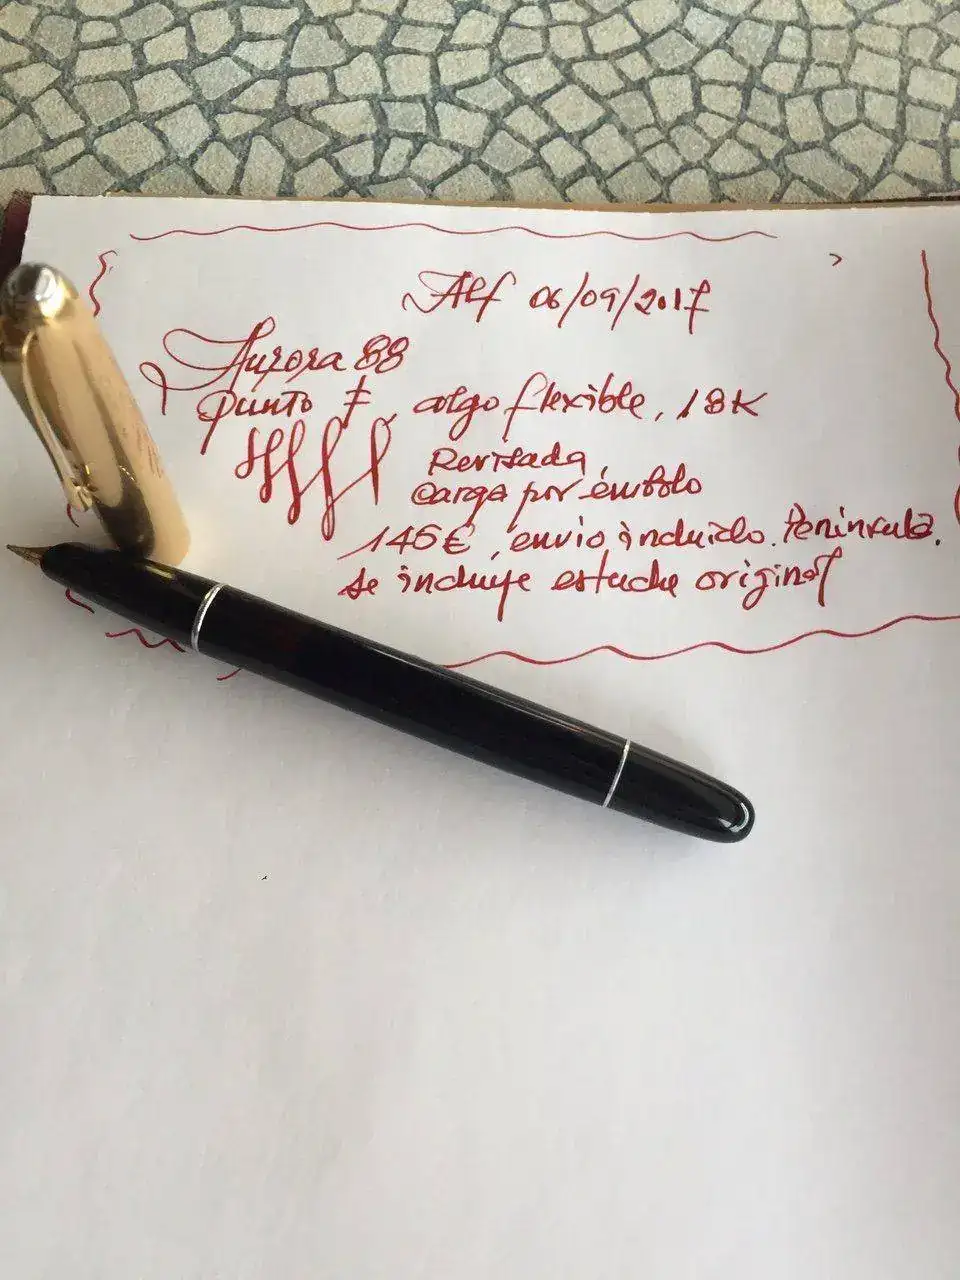 Alf 06/09/2017
Aurora 88
punto F, algo flexible, 18K
Revisada,
carga por émbolo
145€, envio incluido. Península.
se incluye estuche original